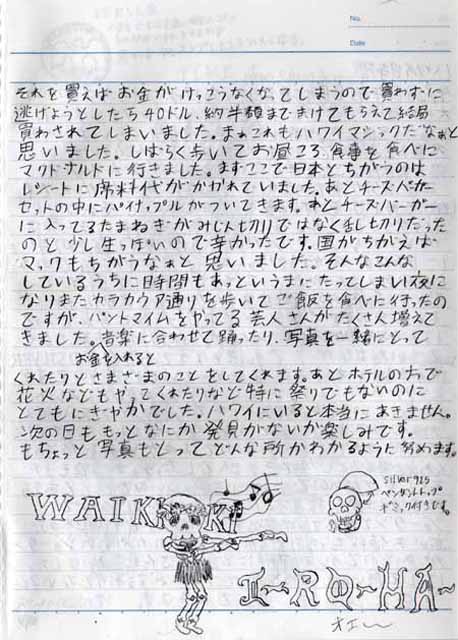 No.
Date
それを買えばお金がけっこうなくなってしまうので買わずに
逃げようとしたら40ドル、約半額までまけてもらえて結局
買わされてしまいました。まぁこれもハワイマジックだなぁと
思いました。しばらく歩いてお昼ころ、食事を食べに
マクドナルドに行きました。まずここで日本とちがうのは
レシートに席料代がかかれていました。あとチーズバーガー
セットの中にパイナップルがついてきます。あとチーズバーガー
に入ってるたまねぎがみじん切りではなく乱切りだった
のと少し生っぽいので辛かったです。国がちがえば
マックもちがうなぁと思いました。そんなこんな
しているうちに時間もあっというまにたってしまい夜に
なりまたカラカウア通りを歩いてご飯を食べに行ったの
ですが、パントマイムをやってる芸人さんがたくさん増えて
きました。音楽に合わせて踊ったり、写真を一緒にとって
お金を入れると
くれたりとさまざまのことをしてくれます。あとホテルの方で
花火などもやってくれたりなど特に祭りでもないのに
とてもにぎやかでした。ハワイにいると本当にあきません。
次の日ももっとなにか発見がないか楽しみです。
もちょっと写真もとってどんな所かわかるように努めます。
WAIKIKI
silver 925
ペンダントトップ
ギミック付うです。
I-RO-HA